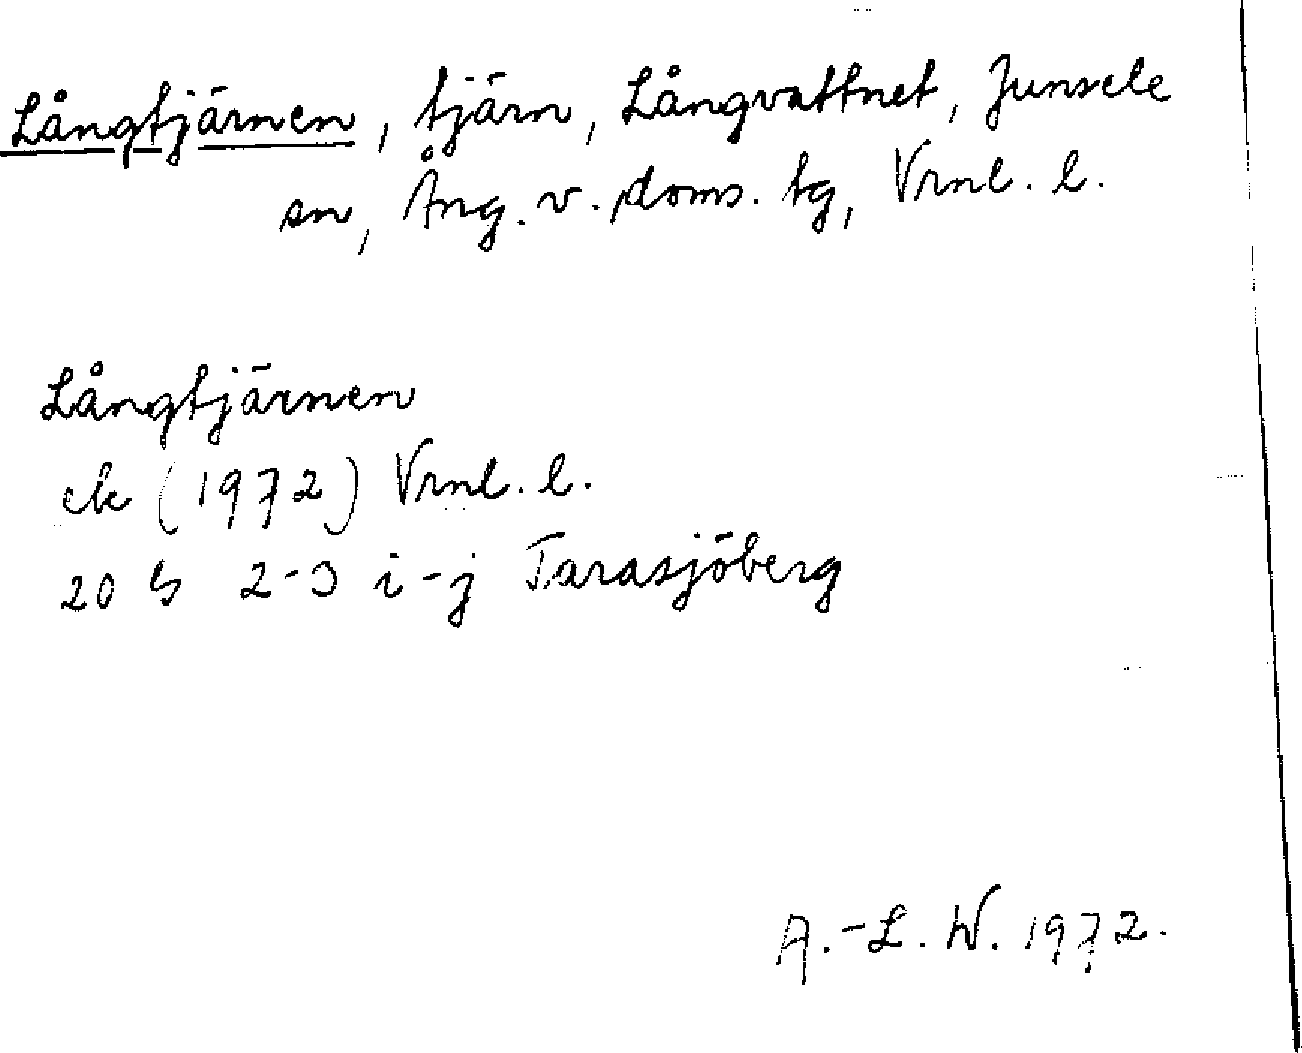 Långtjärnen, tjärn, Långvattnet, Junsele
sn, Ång. v. doms. tg, Vrnl. l.
Långtjärnen
ek (1972) Vrnl. l.
20 G 2-3 i-j Tarasjöberg
A.-L. W. 1972.